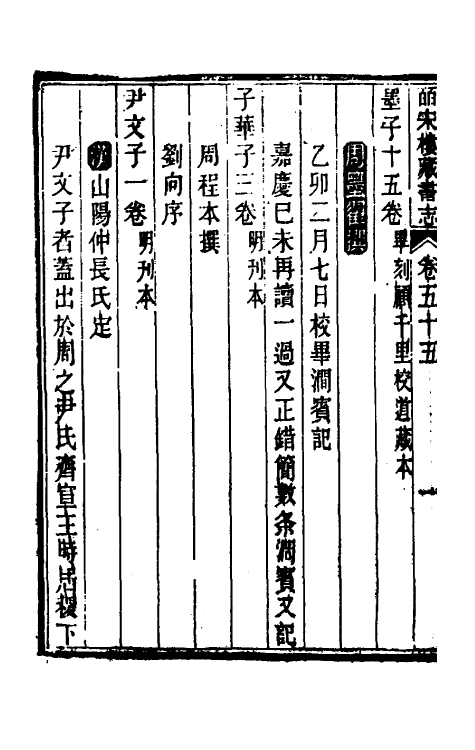 皕宋樓藏書志　卷五十五　一
墨子十五卷　畢刻顧千里校道藏本
周墨翟撰
乙卯二月七日校畢澗賓記
嘉慶己未再讀一過又正錯簡數条澗賓又記
子華子三卷　明刊本
周程本撰
劉向序
尹文子一卷　明刊本
山陽仲長氏定
尹文子者蓋出於周之尹氏齊宣王時居稷下